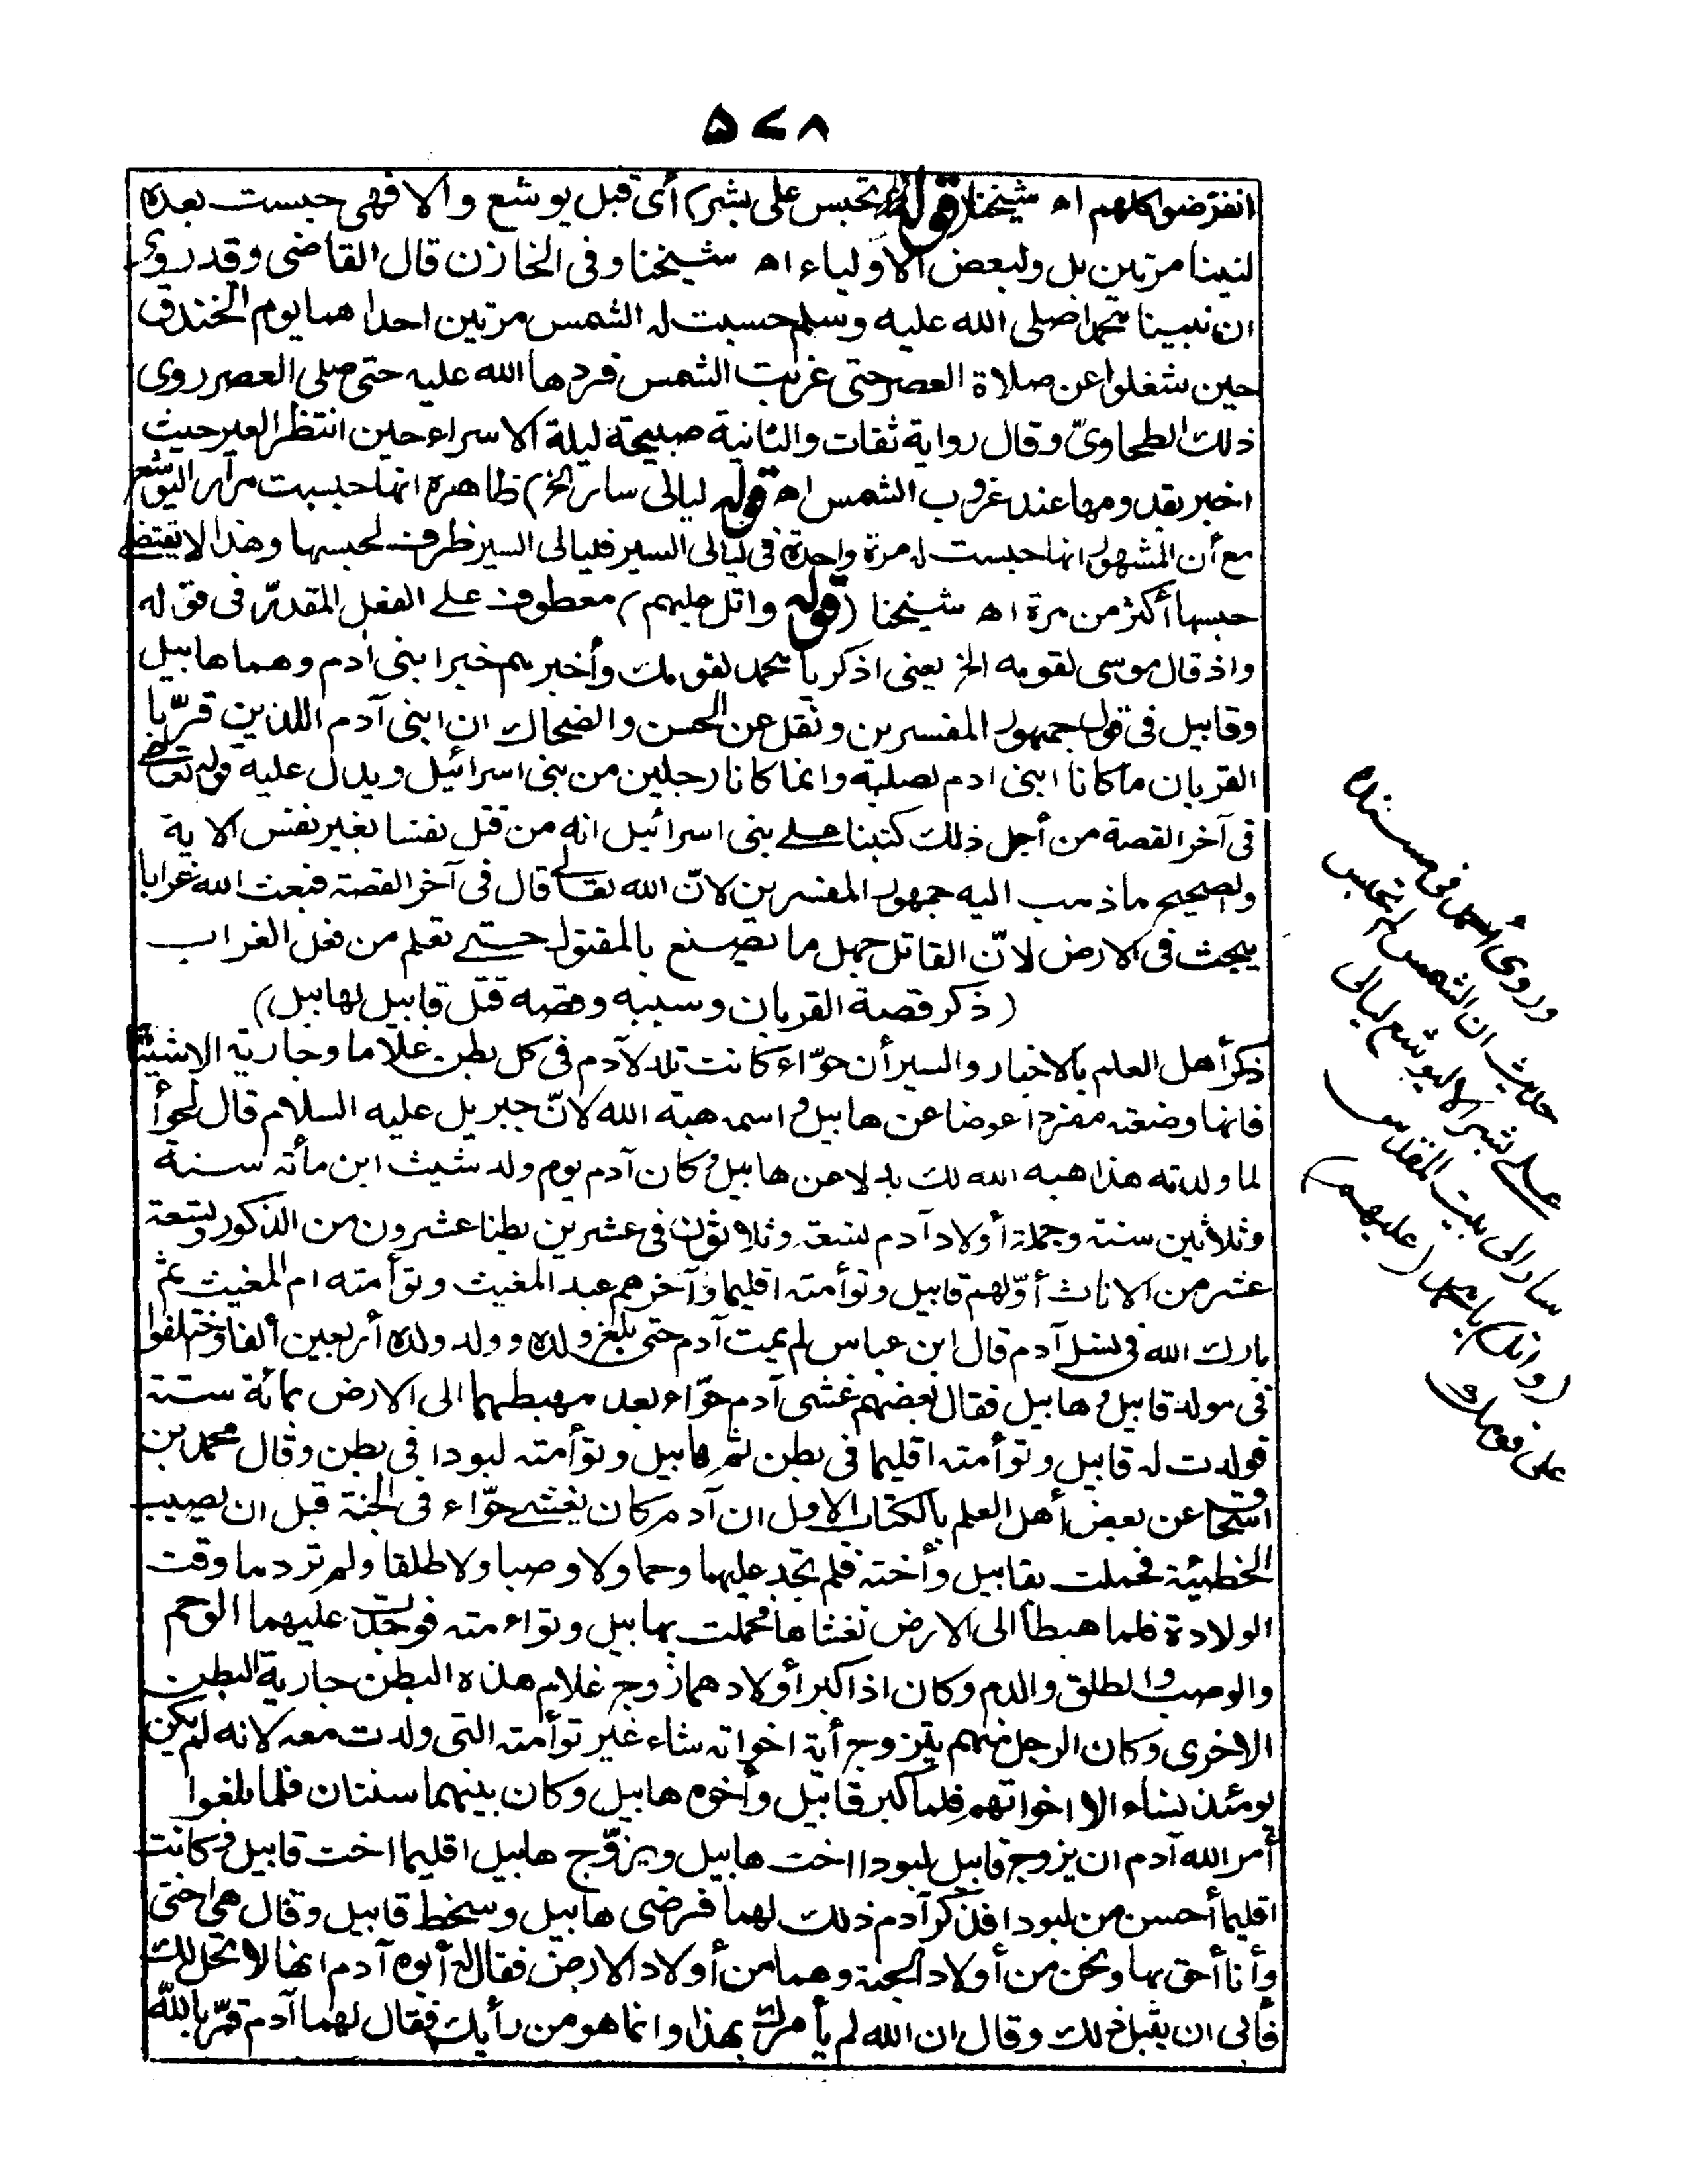 ۵۷۸
انقرضوا كلهم اه شيخنا (قوله لم تحبس على بشر) أى قبل يوشع والا فهى حبست بعده
لنبينا مرتين بل ولبعض الاولياء اه شيخنا وفى الخازن قال القاضى وقد روى
ان نبينا محمدا صلى الله عليه وسلم حبست له الشمس مرتين احداهما يوم الخندق
حين شغلوا عن صلاة العصر حتى غربت الشمس فردها الله عليه حتى صلى العصر روى
ذلك الطحاوىّ وقال رواية ثقات والثانية صبيحة ليلة الاسراء حين انتظر العير حيث
اخبر بقدومها عند غروب الشمس اه قوله ليالى سار الخ) ظاهره انها حبست مرارا ليوشع
مع أن المشهور انها حبست له مرة واحدة فى ليالى السير فليالى السير ظرف لحبسها وهذا لا يقتضى
حبسها أكثر من مرة اه شيخنا (قوله واتل عليهم) معطوف على الفعل المقدّر فى قوله
واذ قال موسى لقومه الخ يعنى اذكر يا محمد لقومك وأخبرهم خبر ابنى ادم وهما هابيل
وقابيل فى قول جمهور المفسرين ونقل عن الحسن والضحاك ان ابنى آدم اللذين قرّبا
القربان ما كانا ابنى ادم لصلبه وانما كانا رجلين من بنى اسرائيل ويدل عليه قوله تعالى
فى آخر القصة من أجل ذلك كتبنا على بنى اسرائيل انه من قتل نفسا بغير نفس الاية
والصحيح ما ذهب اليه جمهور المفسرين لانّ الله تعالى قال فى آخر القصة فبعث الله غرابا
يبحث فى الارض لانّ القاتل جهل ما يصنع بالمقتول حتى تعلم من فعل الغراب
(ذكر قصة القربان وسببه وقصة قتل قابيل لهابيل)
ذكر أهل العلم بالاخبار والسير أن حوّاء كانت تلد لآدم فى كل بطن غلاما وجارية الا شيثا
فانها وضعته مفردا عوضا عن هابيل واسمه هبة الله لانّ جبريل عليه السلام قال لحوأ
لما ولدته هذا هبه الله لك بدلا عن هابيل وكان آدم يوم ولد شيث ابن مأته سنة
وثلاثين سنة وجملة أولاد آدم تسعة وثلاثون فى عشرين بطنا عشرون من الذكور وتسعة
عشر من الاناث أوّلهم قابيل وتوأمته اقليما وآخرهم عبد المغيث وتوأمته ام المغيث ثم
بارك الله فى نسل آدم قال ابن عباس لم يمت آدم حتى بلغ ولده وولد ولده أربعين ألفا واختلفوا
فى مولد قابيل وهابيل فقال بعضهم غشى آدم حوّاء بعد مهبطهما الى الارض بمائة سنة
فولدت له قابيل وتوأمته اقليما فى بطن ثم هابيل وتوأمته لبودا فى بطن وقال محمد بن
اسحاق عن بعض أهل العلم بالكتاب الاول ان آدم كان يغشى حوّاء فى الجنة قبل ان يصيب
الخطيئة فحملت بقابيل وأخته فلم تجد عليهما وحما ولا وصبا ولا طلقا ولم تر دما وقت
الولادة فلما هبطا الى الارض تغشاها فحملت بهابيل وتواءمته فوجدت عليهما الوحم
والوصب والطلق والدم وكان اذا كبر أولادهما زوج غلام هذه البطن جارية البطن
الاخرى وكان الرجل منهم يتزوج أية اخواته شاء غير توأمته التى ولدت معه لانه لم يكن
يومئذ نساء الا اخواتهم فلما كبر قابيل وأخوه هابيل وكان بينهما سنتان فلما بلغوا
أمر الله آدم ان يزوج قابيل لبودا اخت هابيل ويزوّج هابيل اقليما اخت قابيل وكانت
اقليما أحسن من لبودا فذكر آدم ذلك لهما فرضى هابيل وسخط قابيل وقال هى اختى
وأنا أحق بها ونحن من أولاد الجنة وهما من أولاد الارض فقال له أبوه آدم انها لا تحل لك
فأبى ان يقبل ذلك وقال ان الله لم يأمرك بهذا وانما هو من رأيك فقال لهما آدم قرّبا لله
وروى أحمد فى مسنده
حديث ان الشمس لم تحبس
على بشر الا ليوشع ليالى
سار الى بيت المقدس
(واتل) يا محمد (عليهم)
على قومك